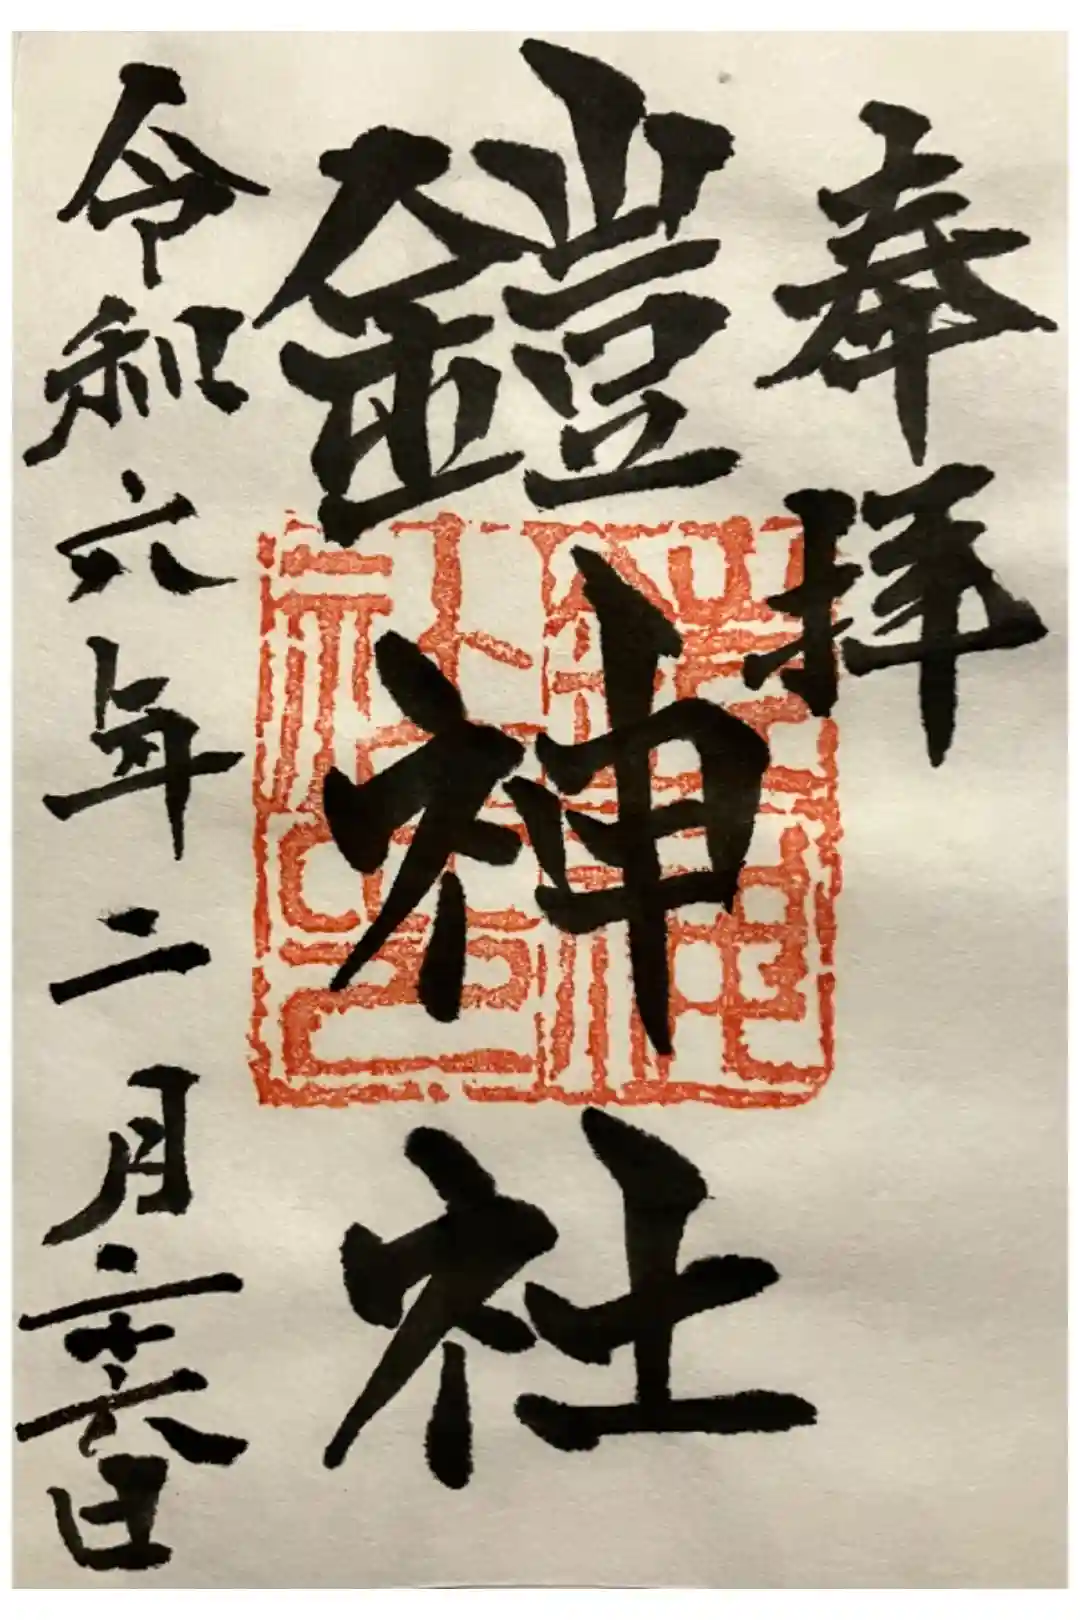 奉拝
鎧神社
令和六年二月二十六日